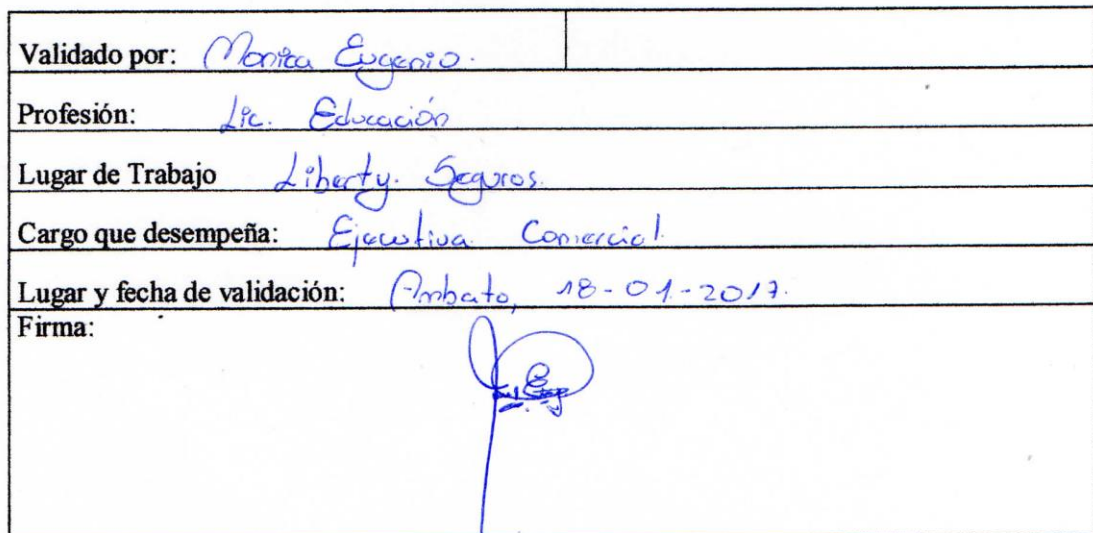 Validado por: Monica Eugenio.
Profesión: Lic. Educación
Lugar de Trabajo Liberty. Seguros.
Cargo que desempeña: Ejecutiva Comercial.
Lugar y fecha de validación: Ambato, 18-01-2017.
Firma: